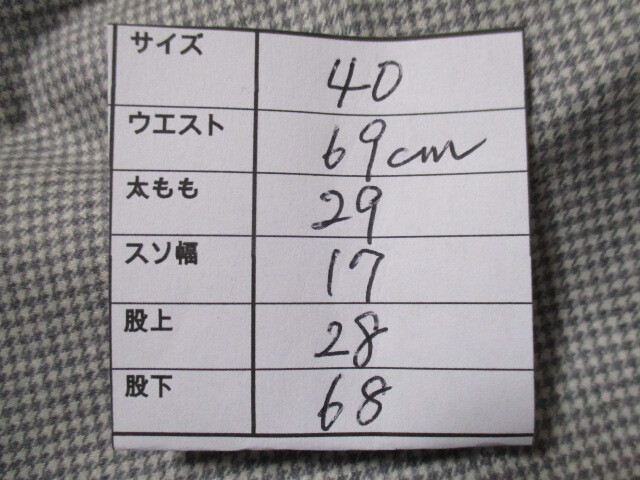 サイズ 40
ウエスト 69cm
太もも 29
スソ幅 17
股上 28
股下 68